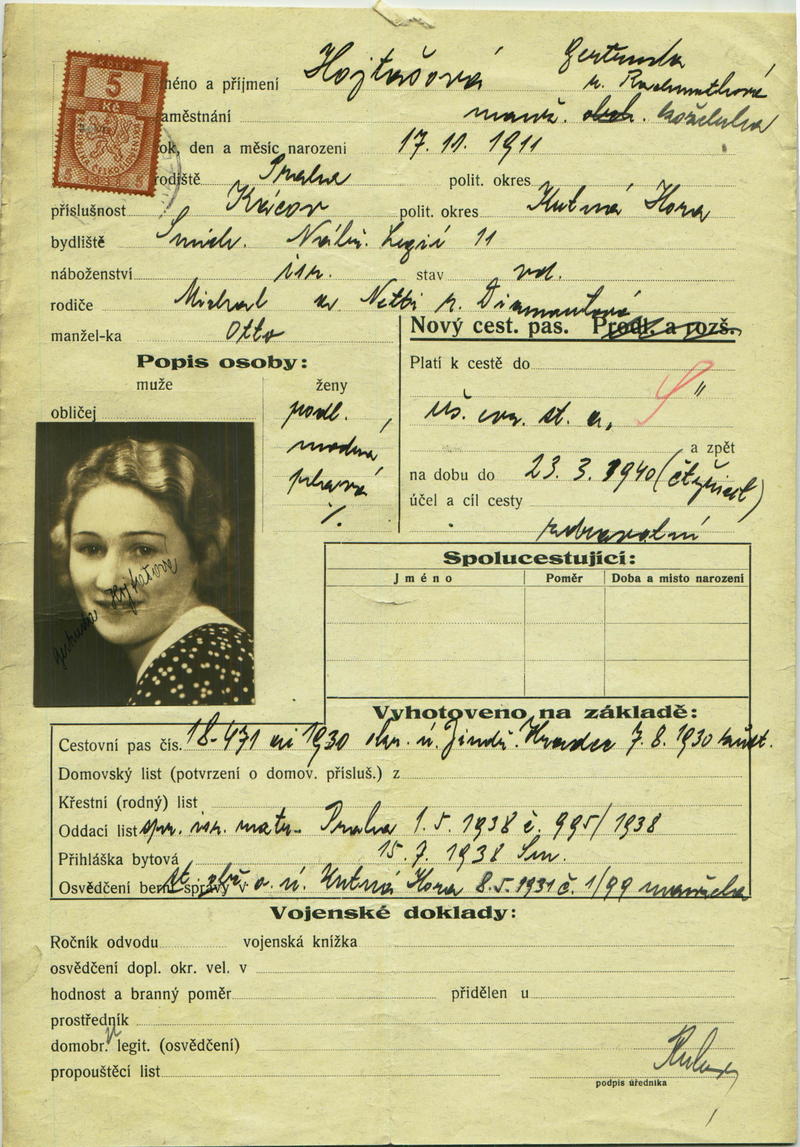 5
Kč
méno a příjmení Hojtašová Gertruda
aměstnání manž.
ok, den a měsíc narození 17. 11. 1911
rodiště Praha polit. okres
příslušnost Kácov polit. okres Kutná Hora
bydliště Smích. Nábř. Legií 11
náboženství isr. stav vd.
rodiče Michael a Netti r. Diamantová
manžel-ka Otto
Nový cest. pas. Prodl. a rozš.
Popis osoby:
muže ženy
obličej podl.
modrá
plavá
%
Platí k cestě do
"
a zpět
na dobu do 23. 3. 1940
účel a cíl cesty
Spolucestující:
Jméno Poměr Doba a místo narození
Vyhotoveno na základě:
Cestovní pas čís. 18-471 1930 okr. ú. Jindř. Hradec 7. 8. 1930
Domovský list (potvrzení o domov. přísluš.) z
Křestní (rodný) list
Oddací list isr. matr. Praha 1. 5. 1938 č. 995/1938
Přihláška bytová 15. 7. 1938 Sm.
Osvědčení berní správy v o. ú. Kutná Hora 8. 5. 1931 č. 1/99 manžela
Vojenské doklady:
Ročník odvodu vojenská knížka
osvědčení dopl. okr. vel. v
hodnost a branný poměr přidělen u
prostředník
domobr. legit. (osvědčení)
propouštěcí list
podpis úředníka